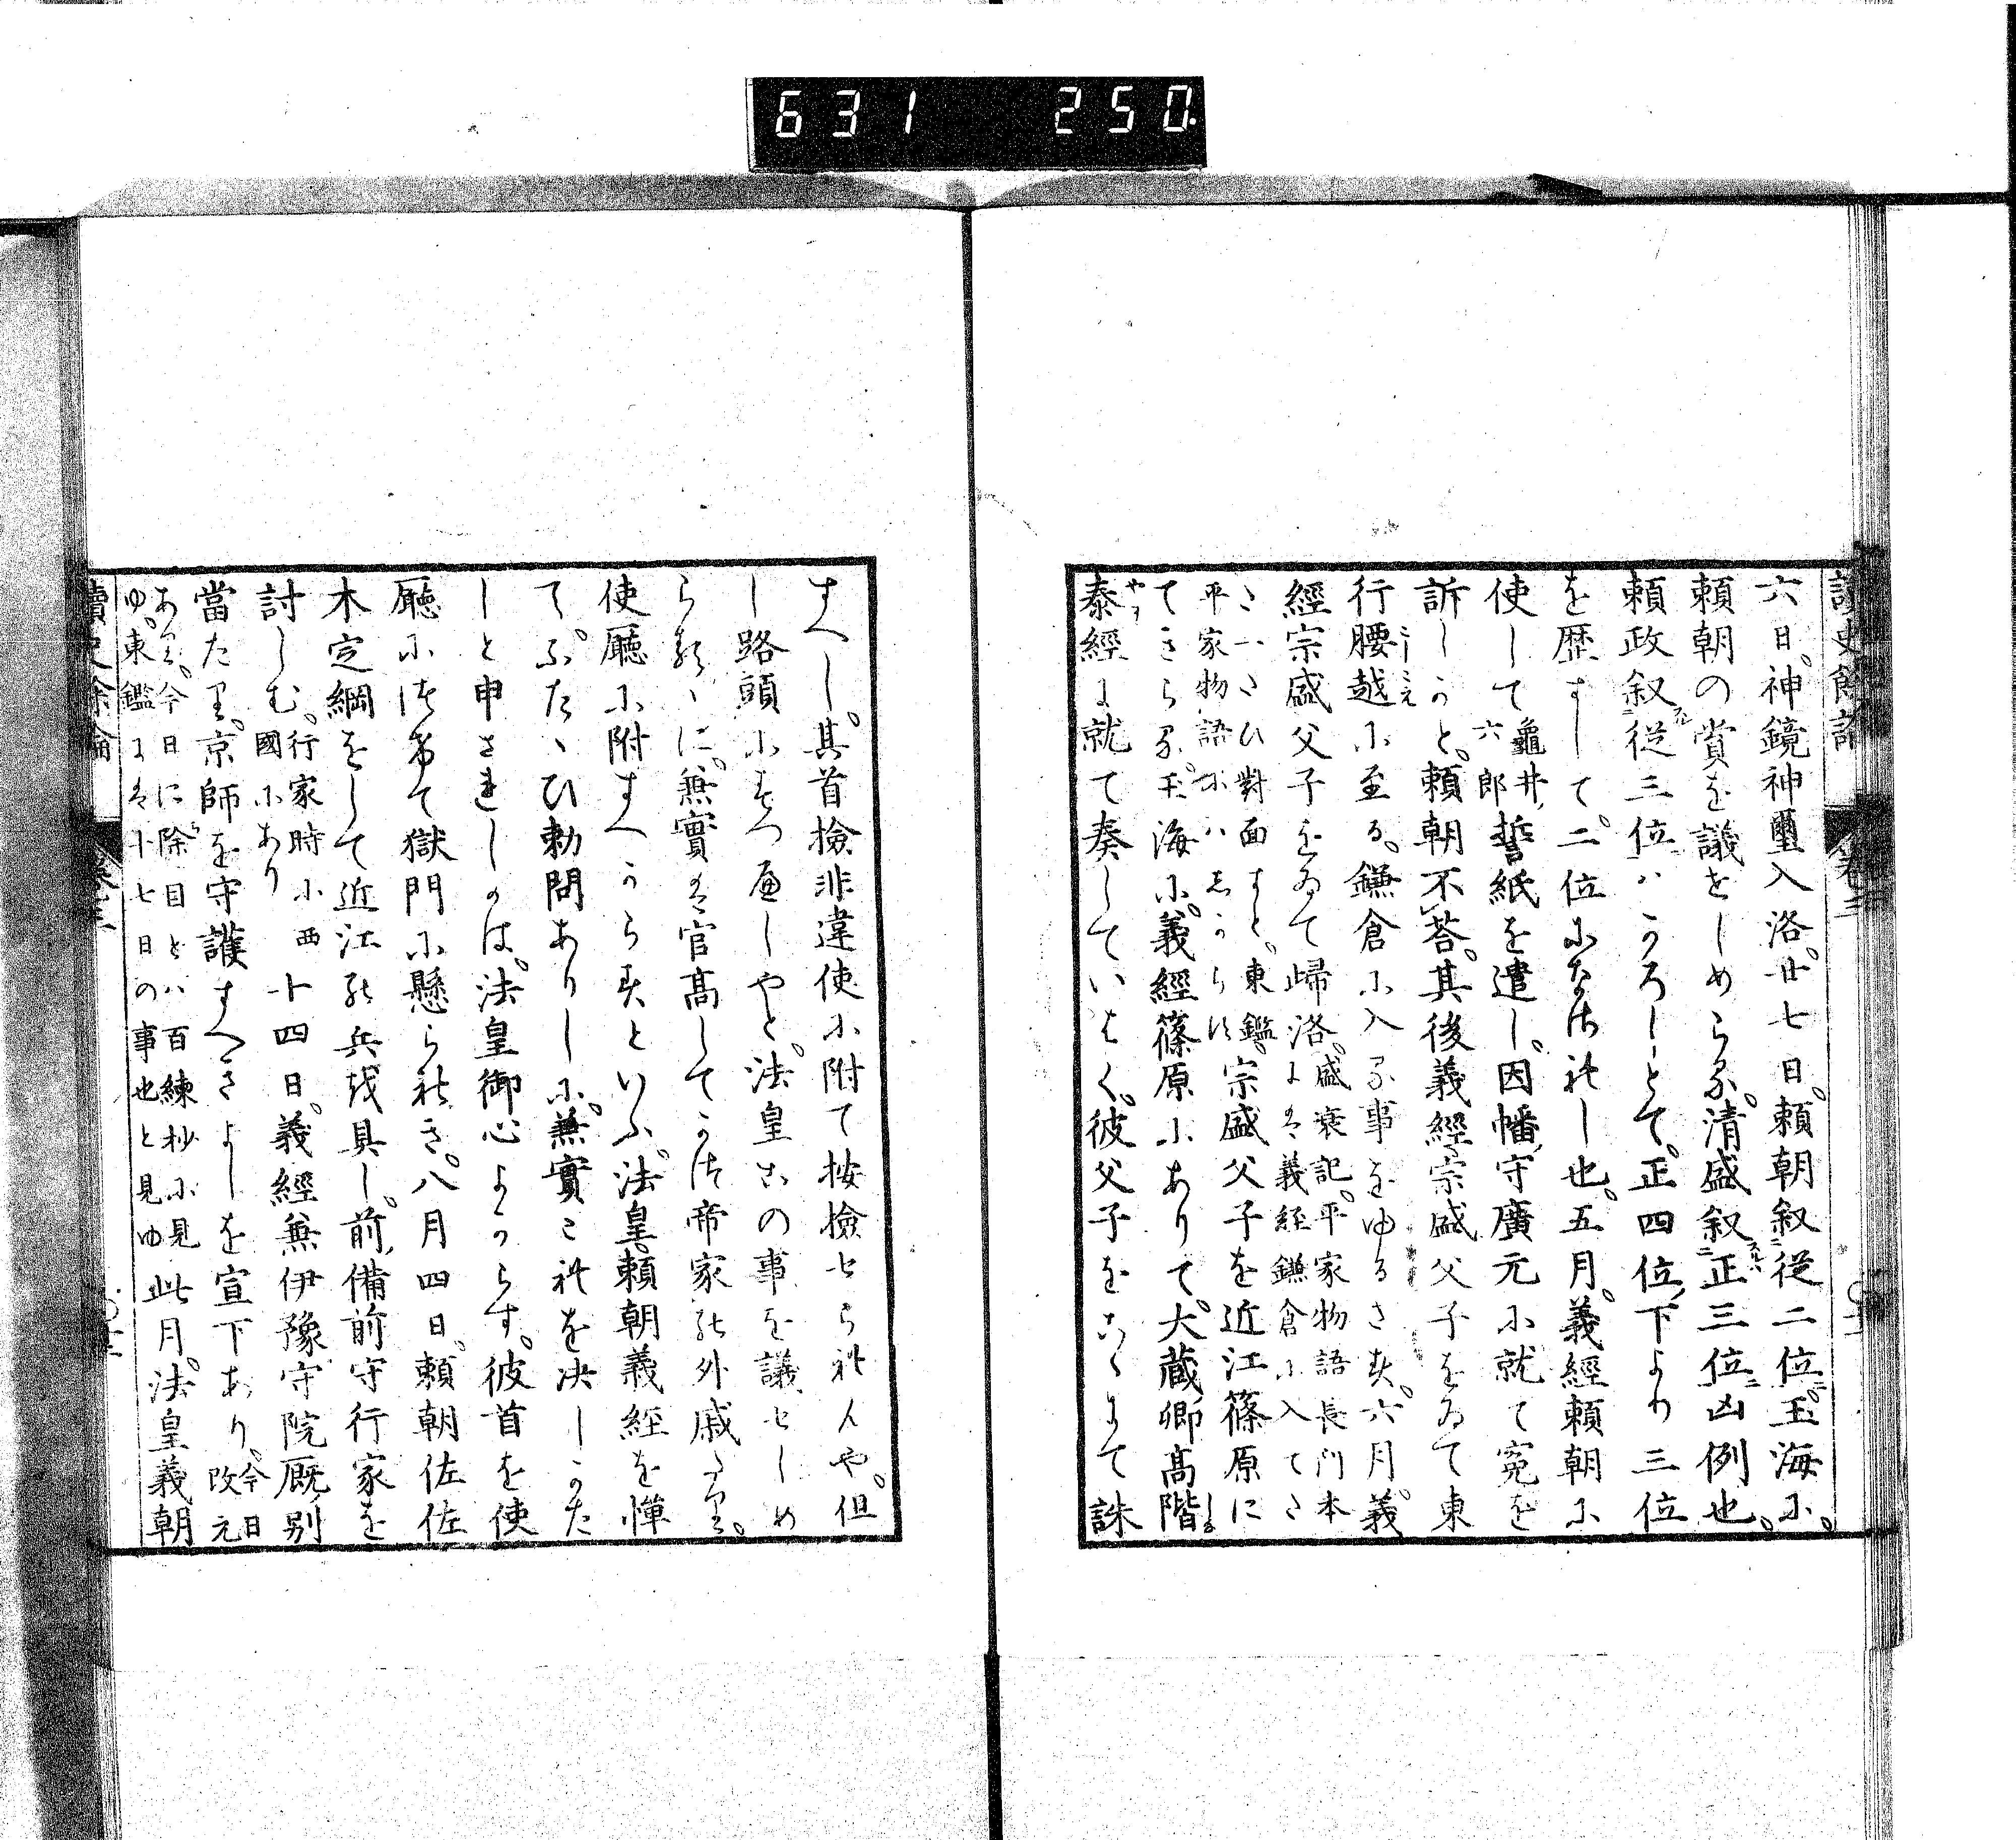 631 250
讀史餘論 卷三
六日。神鏡神璽入洛。廿七日。頼朝叙従二位。玉海に。
頼朝の賞を議せしめらる。清盛叙正三位凶例也。
頼政叙従三位ハうろしとて。正四位下より三位
を歴すして。二位になされし也。五月。義經頼朝に
使して龜井六郎誓紙を遣し。因幡守廣元に就て寃を
訴しかと。頼朝不荅。其後義經宗盛父子をゐて東
行腰越に至る。鎌倉に入る事をゆるさす。六月。義
經宗盛父子をゐて歸洛。盛衰記。平家物語長門本に義經鎌倉に入てさ
さハさひ對面すと。東鑑。平家物語にハしからす 宗盛父子を近江篠原に
てきらる。玉海に。義經篠原にありて。大蔵卿髙階
泰經に就て奏していはく。彼父子をこゝにて誅
すへし。其首撿非違使に附て按撿せられんや。但
し路頭にすつへしやと。法皇此の事を議せしめ
らるゝに。無實は官髙してかつ帝家の外戚たり。
使廳に附すへからすといふ。法皇頼朝義經を憚
て。ふたゝひ勅問ありしに。無實これを决しかた
しと申されしかは。法皇御心よからす。彼首を使
廳につけて獄門に懸られき。八月四日。頼朝佐佐
木定綱をして近江の兵を具し。前備前守行家を
討しむ。行家時に西國にあり 十四日。義經兼伊豫守院厩別
當たり。京師を守護すへきよしを宣下あり。今日改元
あり。今日に除目とハ百練抄に見ゆ。東鑑には十七日の事也と見ゆ 此月。法皇義朝
讀史餘論 卷三